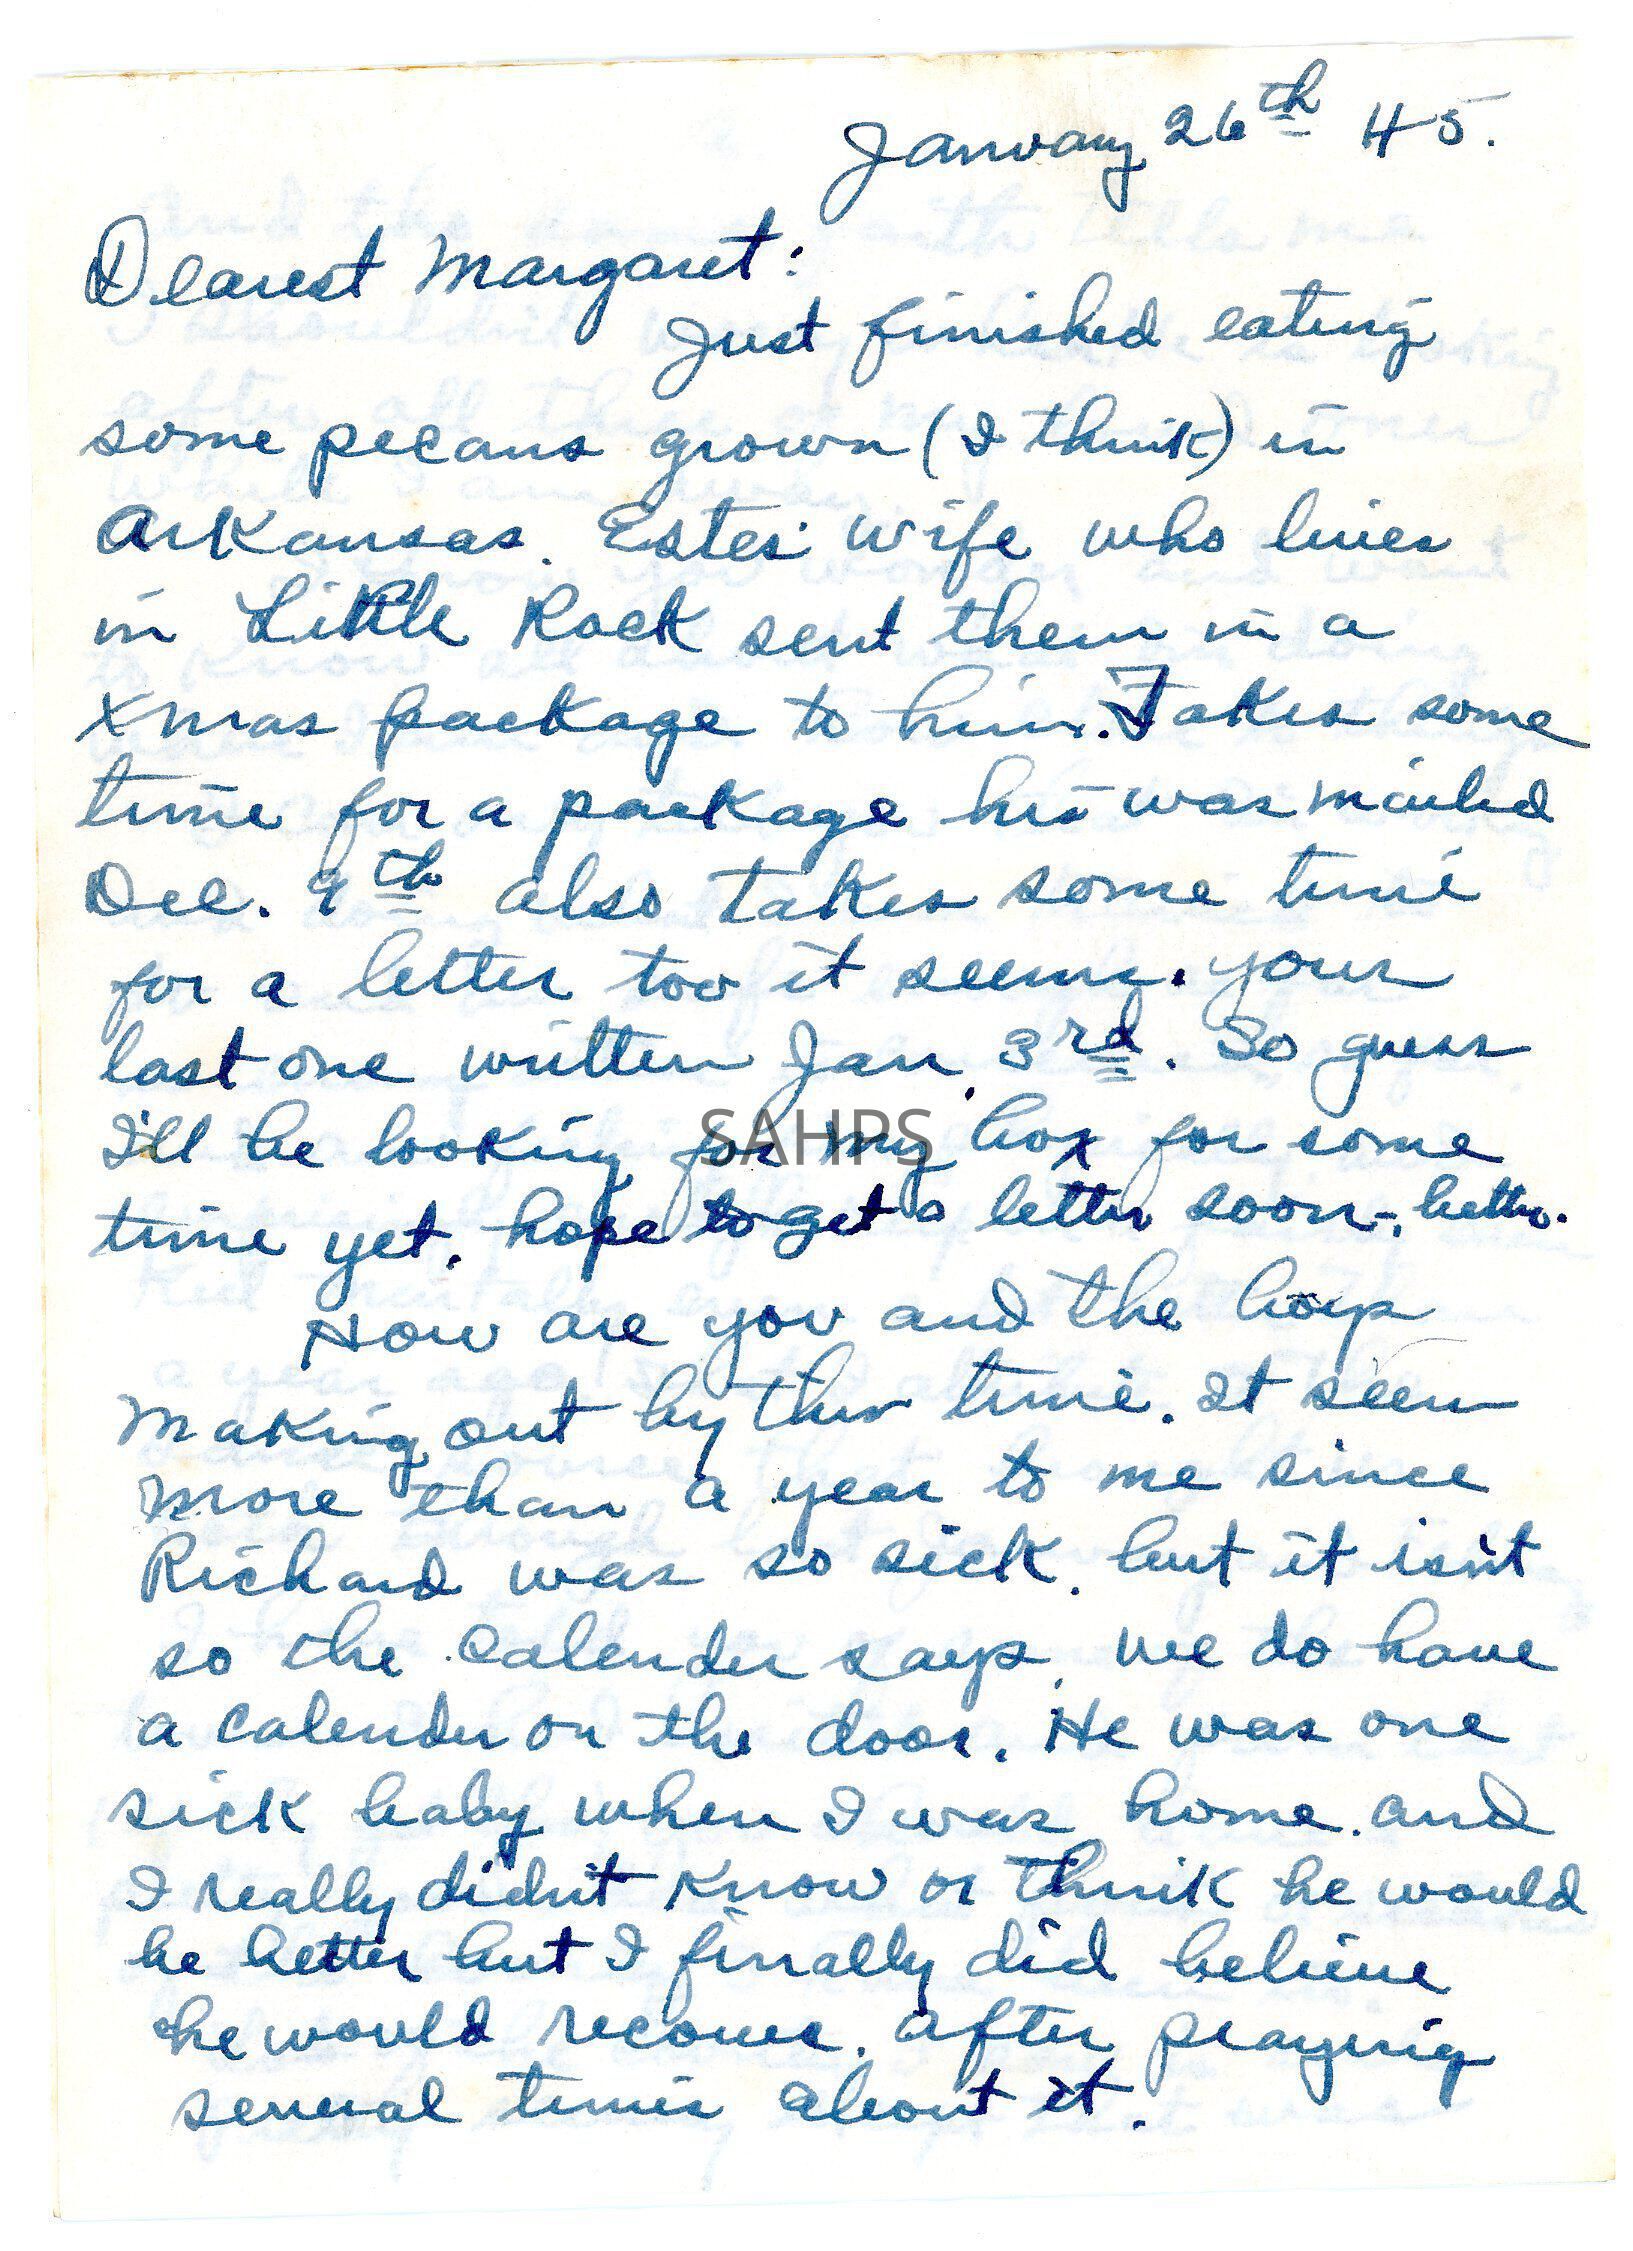 January 26th 45.
Dearest Margaret:
Just finished eating
some pecans grown (I think) in
Arkansas. Estes' wife who lives
in Little Rock sent them in a
xmas package to him. Takes some
time for a package his was mailed
Dec. 9th also takes some time
for a letter too it seems. yours
last one written Jan. 3rd. So guess
I'll be looking for my box for some
SAHPS
time yet. hope to get a letter soon,
How are you and the boys
making out by this time. It seem
more than a year to me since
Richard was so sick. but it isn't
so the calender says. we do have
a calender on the door. He was one
sick baby when I was home. and
I really didn't know or think he would
be better but I finally did believe
he would recover. after praying
several times about it.